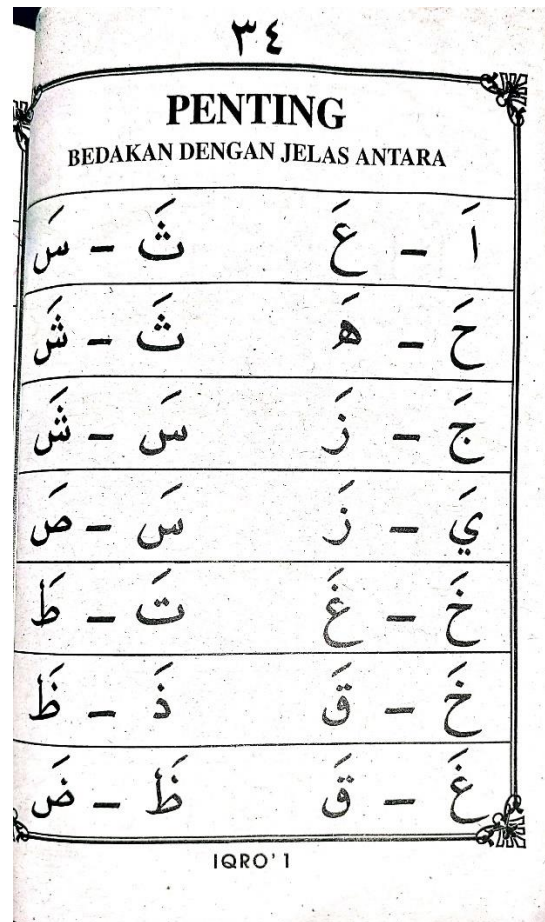 ٣٤
PENTING
BEDAKAN DENGAN JELAS ANTARA
اَ – عَ ثَ – سَ
حَ – هَ ثَ – شَ
جَ – زَ سَ – شَ
يَ – زَ سَ – صَ
خَ – غَ تَ – طَ
خَ – قَ ذَ – ظَ
غَ – قَ ظَ – ضَ
IQRO' 1